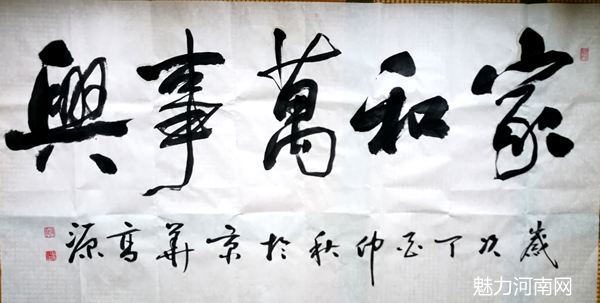 家和萬事興
歲次丁酉仲秋於京華高源
魅力河南网